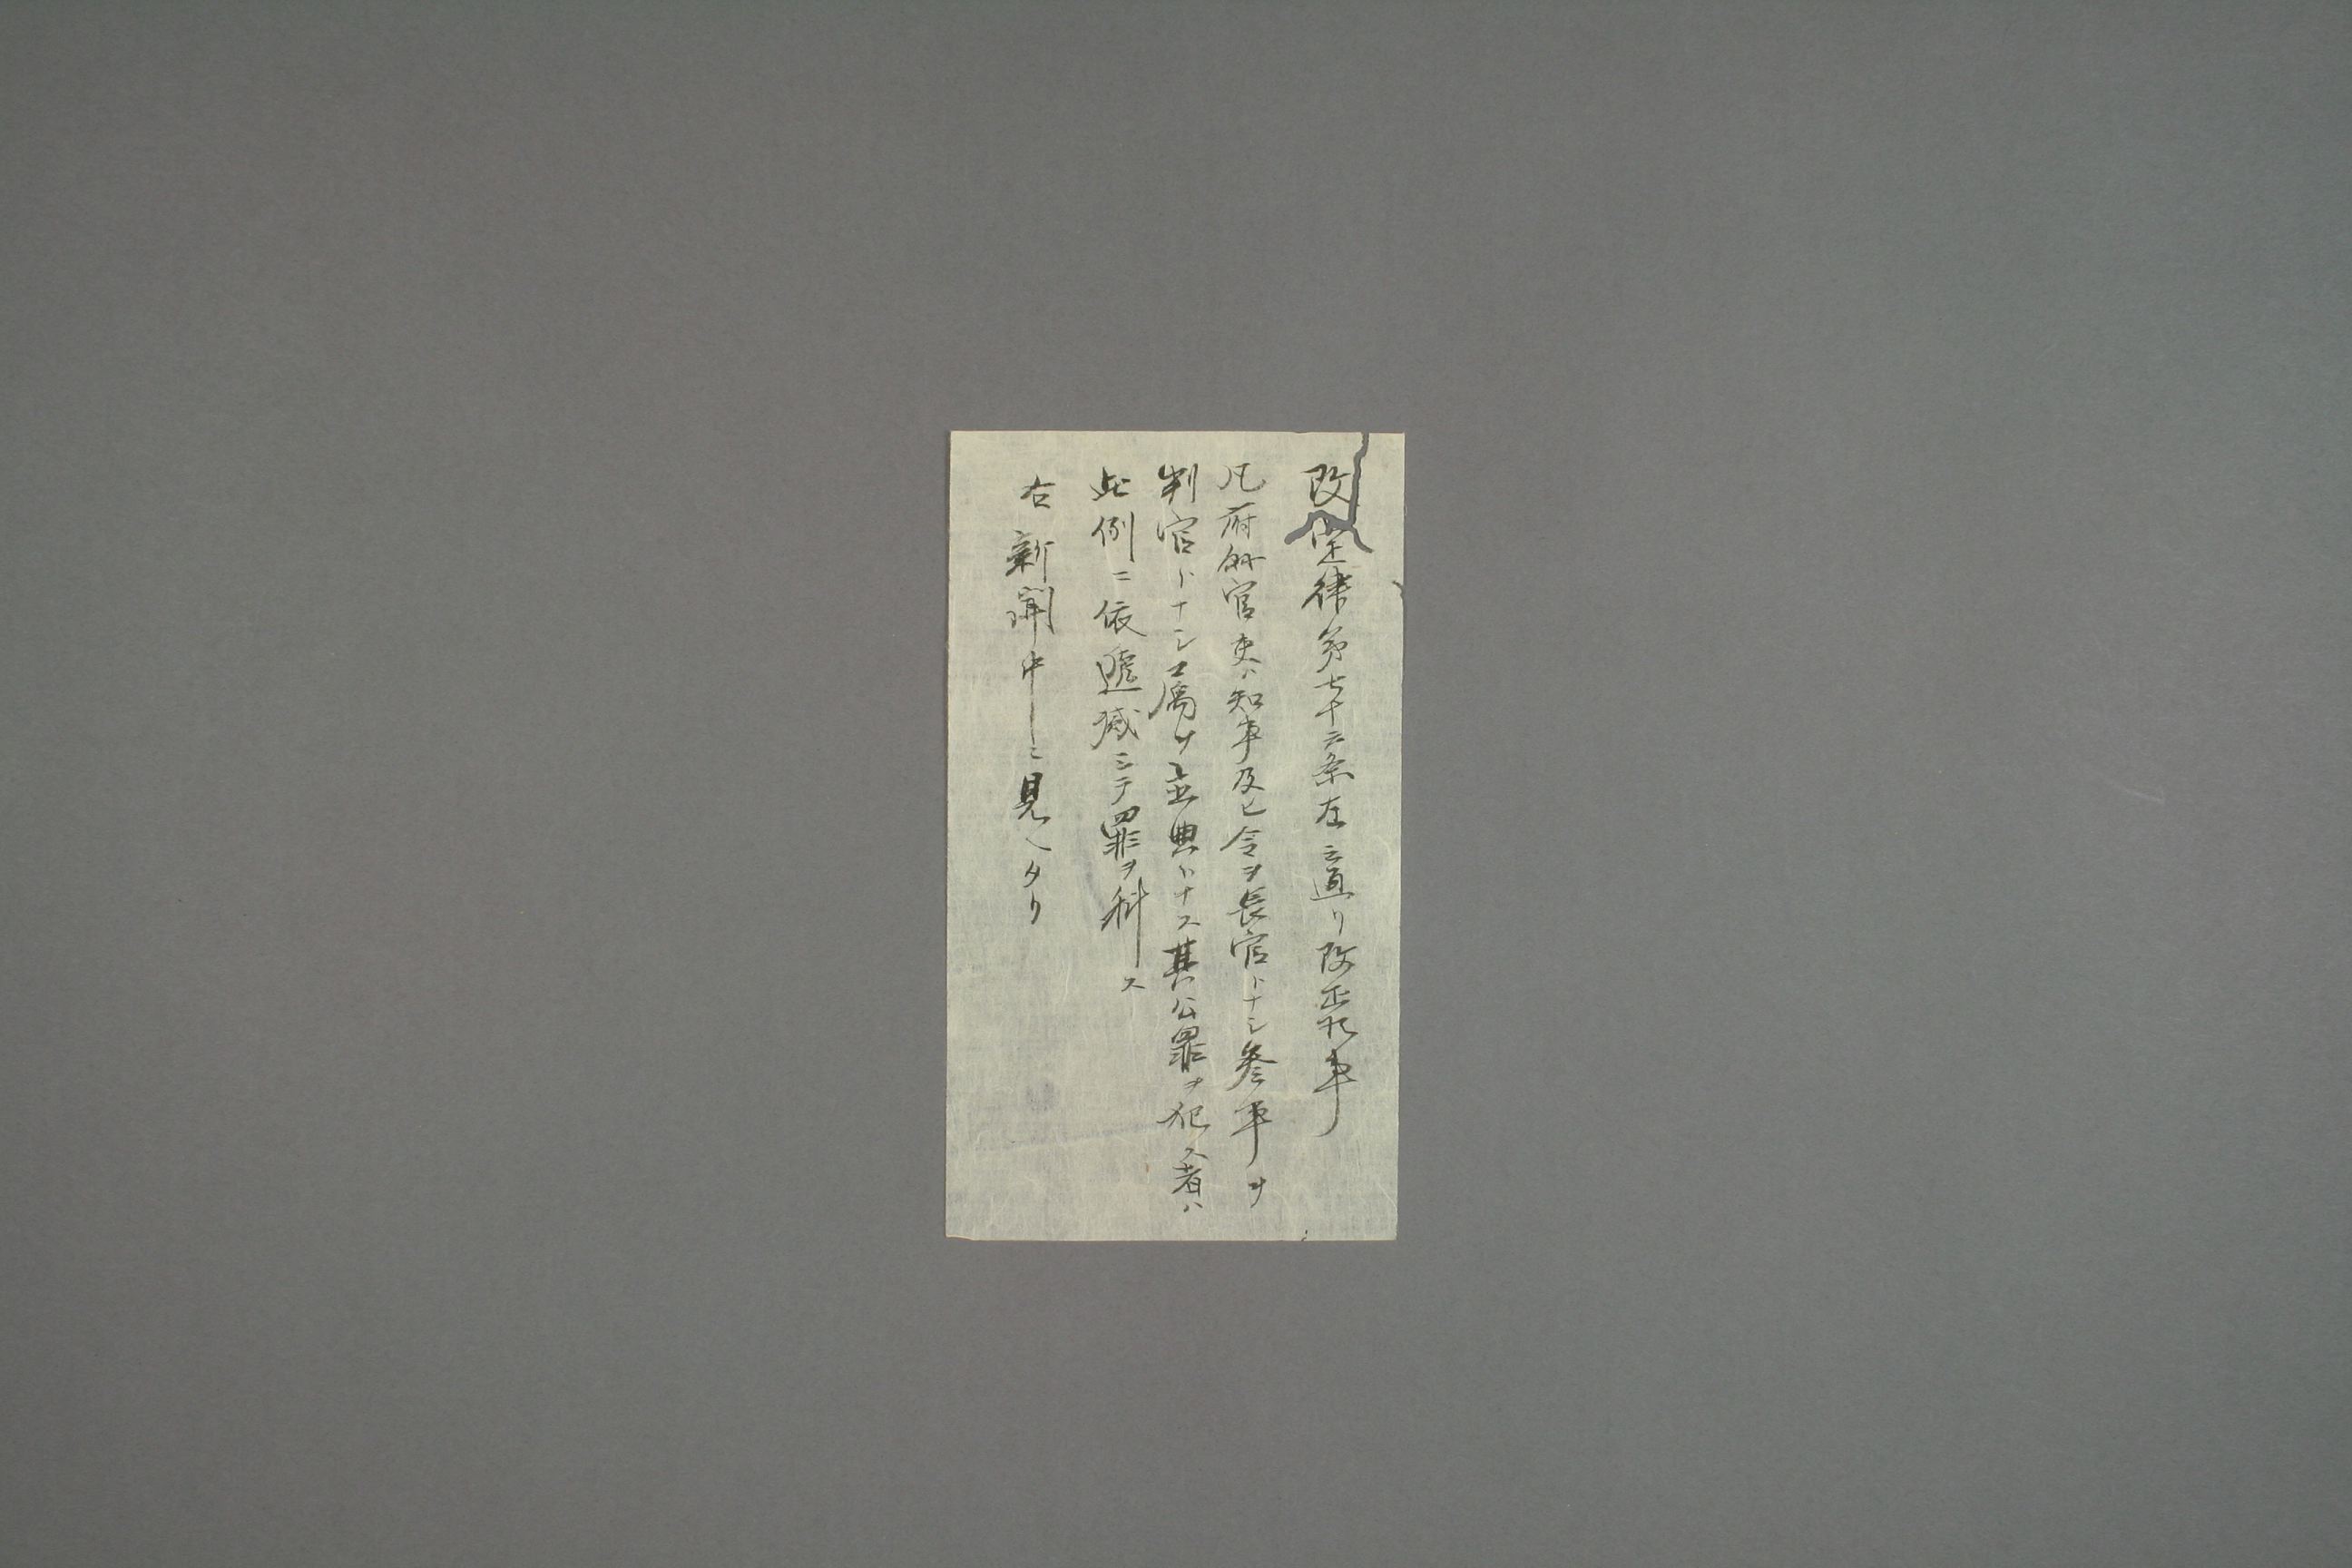 改定律第七十二条左ニ通リ改正相成候事
凡府縣官吏ハ知事及ヒ令ヲ長官トナシ参事ヲ
判官トナシ属ヲ主典トナス其公罪ヲ犯ス者ハ
此例ニ依遞減シテ罪ヲ科ス
右新聞中ニ見ヘタリ